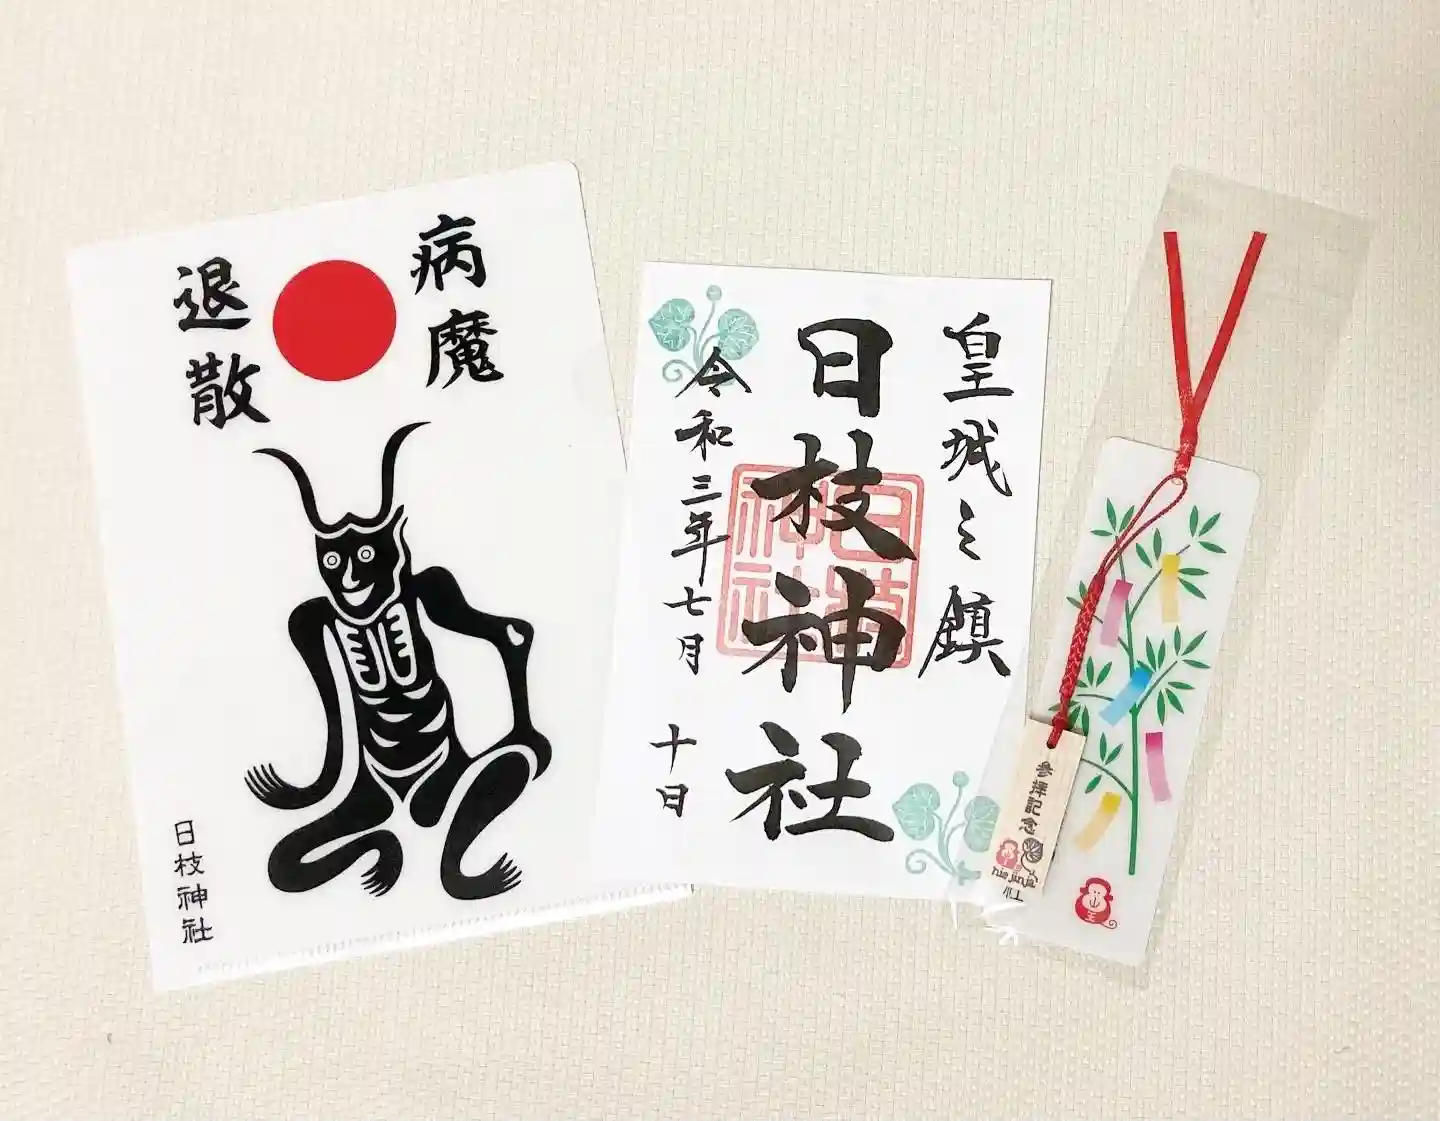 病魔
退散
日枝神社
皇城之鎮
日枝神社
令和三年七月
十日
参拝記念
hie jinja